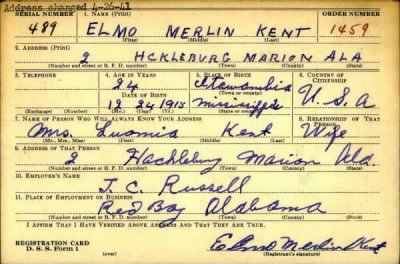 Address changed 4-26-41
SERIAL NUMBER 1. NAME (Print) ORDER NUMBER
489 ELMO MERLIN KENT 1459
(First) (Middle) (Last)
2. ADDRESS (Print)
2 HCKLEBURG MARION ALA
(Number and street or R. F. D. number) (Town) (County) (State)
3. TELEPHONE 4. AGE IN YEARS 5. PLACE OF BIRTH 6. COUNTRY OF CITIZENSHIP
24 Itawambia
DATE OF BIRTH (Town or county)
12 24 1915 Mississippi U.S.A
(Exchange) (Number) (Mo.) (Day) (Yr.) (State or country)
7. NAME OF PERSON WHO WILL ALWAYS KNOW YOUR ADDRESS 8. RELATIONSHIP OF THAT PERSON
Mrs. Kent Wife
(Mr., Mrs., Miss) (First) (Middle) (Last)
9. ADDRESS OF THAT PERSON
2 Hackleburg Marion Ala.
(Number and street or R. F. D. number) (Town) (County) (State)
10. EMPLOYER'S NAME
J. C. Russell
11. PLACE OF EMPLOYMENT OR BUSINESS
Red Bay Alabama
(Number and street or R. F. D. number) (Town) (County) (State)
I AFFIRM THAT I HAVE VERIFIED ABOVE ANSWERS AND THAT THEY ARE TRUE.
REGISTRATION CARD
D. S. S. Form 1 Elmo Merlin Kent
(Registrant's signature)